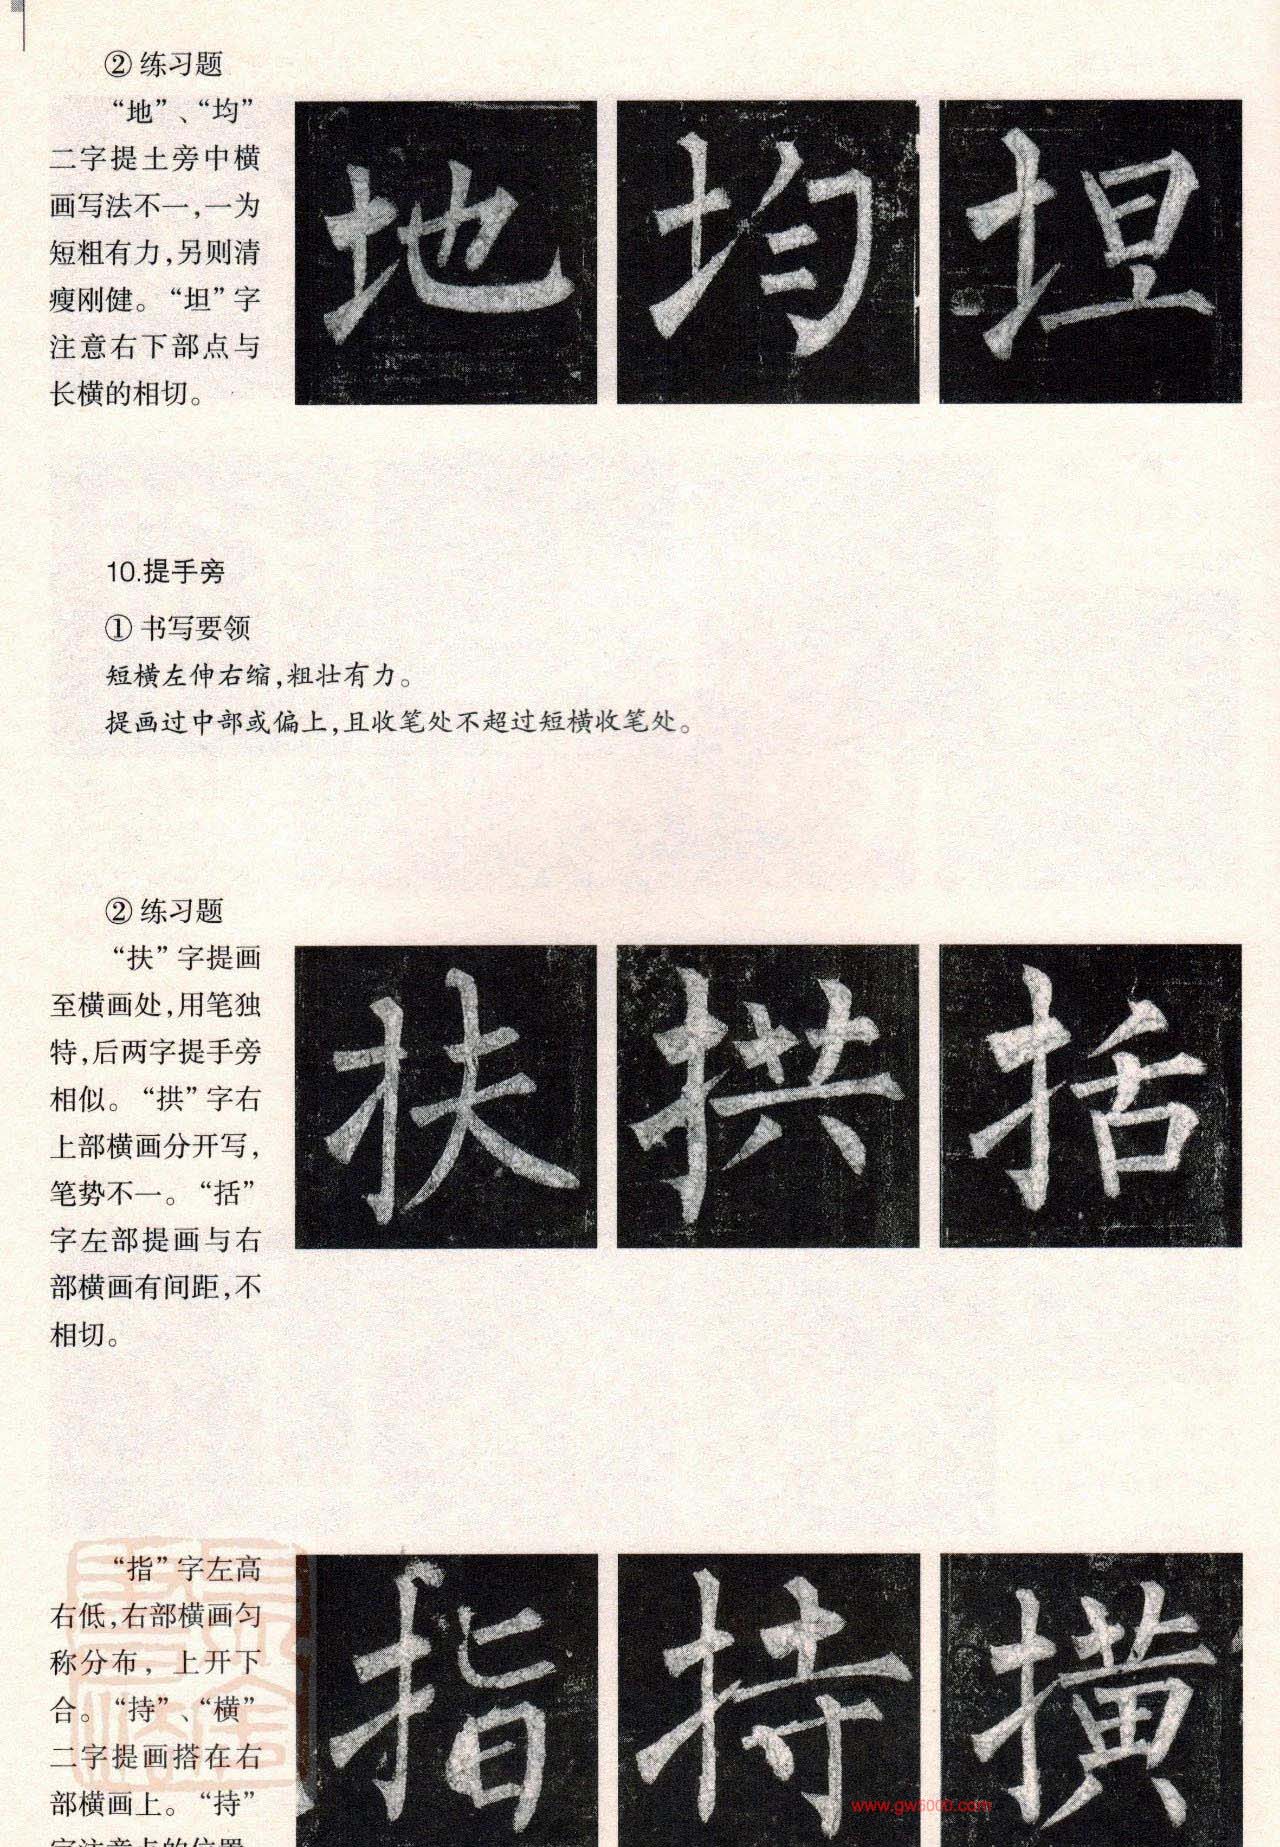 ② 练习题
“地”、“均”
二字提土旁中横
画写法不一,一为
短粗有力,另则清
瘦刚健。“坦”字
注意右下部点与
长横的相切。
地 均 坦
10.提手旁
① 书写要领
短横左伸右缩,粗壮有力。
提画过中部或偏上,且收笔处不超过短横收笔处。
② 练习题
“扶”字提画
至横画处,用笔独
特,后两字提手旁
相似。“拱”字右
上部横画分开写,
笔势不一。“括”
字左部提画与右
部横画有间距,不
相切。
扶 拱 括
“指”字左高
右低,右部横画匀
称分布,上开下
合。“持”、“横”
二字提画搭在右
部横画上。“持”
字注意点的位置
指 持 撗
www.gw5000.com